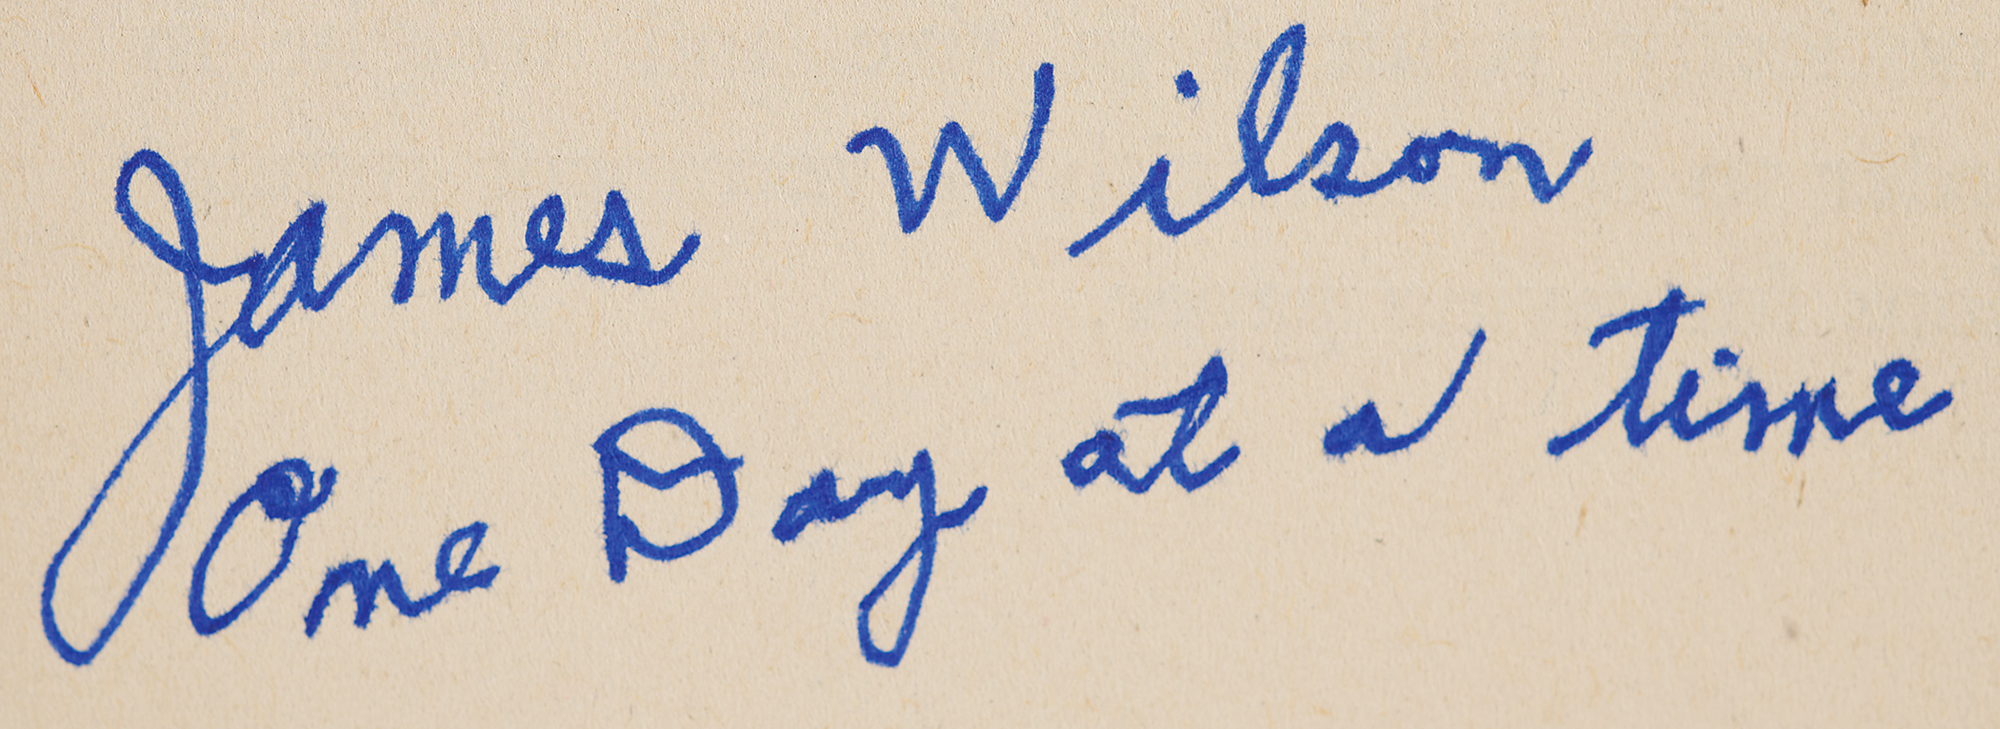 James Wilson
One Day at a time